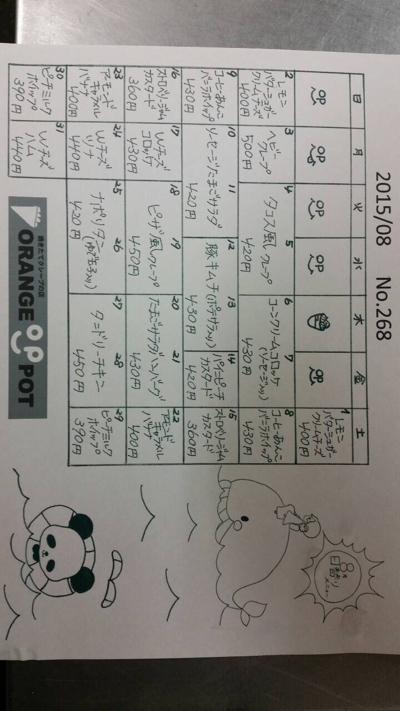 2015/08 No.268
日 月 火 水 木 金 土
1
レモン
バターシュガー
クリームチーズ
400円
2
レモン
バターシュガー
クリームチーズ
400円
3
ヘビー
クレープ
500円
4 5
タコス風クレープ
420円
6 7
コーンクリームコロッケ
(ソーセージ入り)
430円
8
コーヒーあんこ
バニラホイップ
430円
9
コーヒーあんこ
バニラホイップ
430円
10 11
ソーセージたまごサラダ
420円
12 13
豚キムチ(ポテサラ入り)
430円
14
パインピーチ
カスタード
420円
15
ストロベリージャム
カスタード
360円
16
ストロベリージャム
カスタード
360円
17
Wチーズ
コロッケ
430円
18 19
ピザ風クレープ
450円
20 21
たまごサラダハンバーグ
430円
22
アーモンド
キャラメル
バナナ
400円
23
アーモンド
キャラメル
バナナ
400円
24
Wチーズ
ツナ
440円
25 26
ナポリタン(ゆで玉子入り)
420円
27 28
タンドリーチキン
450円
29
ピーチミルク
ホイップ
390円
30
ピーチミルク
ホイップ
390円
31
Wチーズ
ハム
440円
焼きたてクレープの店
ORANGE POT
8月
日替り
メニュー